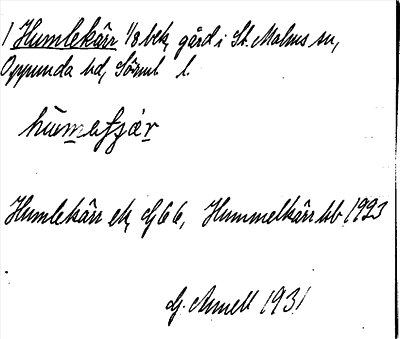 1 Humlekärr 1/8 bek, gård i St. Malms sn,
Oppunda hd, Söml l.
Humlekärr ek, Gj 66, Hummelkärr hb 1923
G. Annell 1931